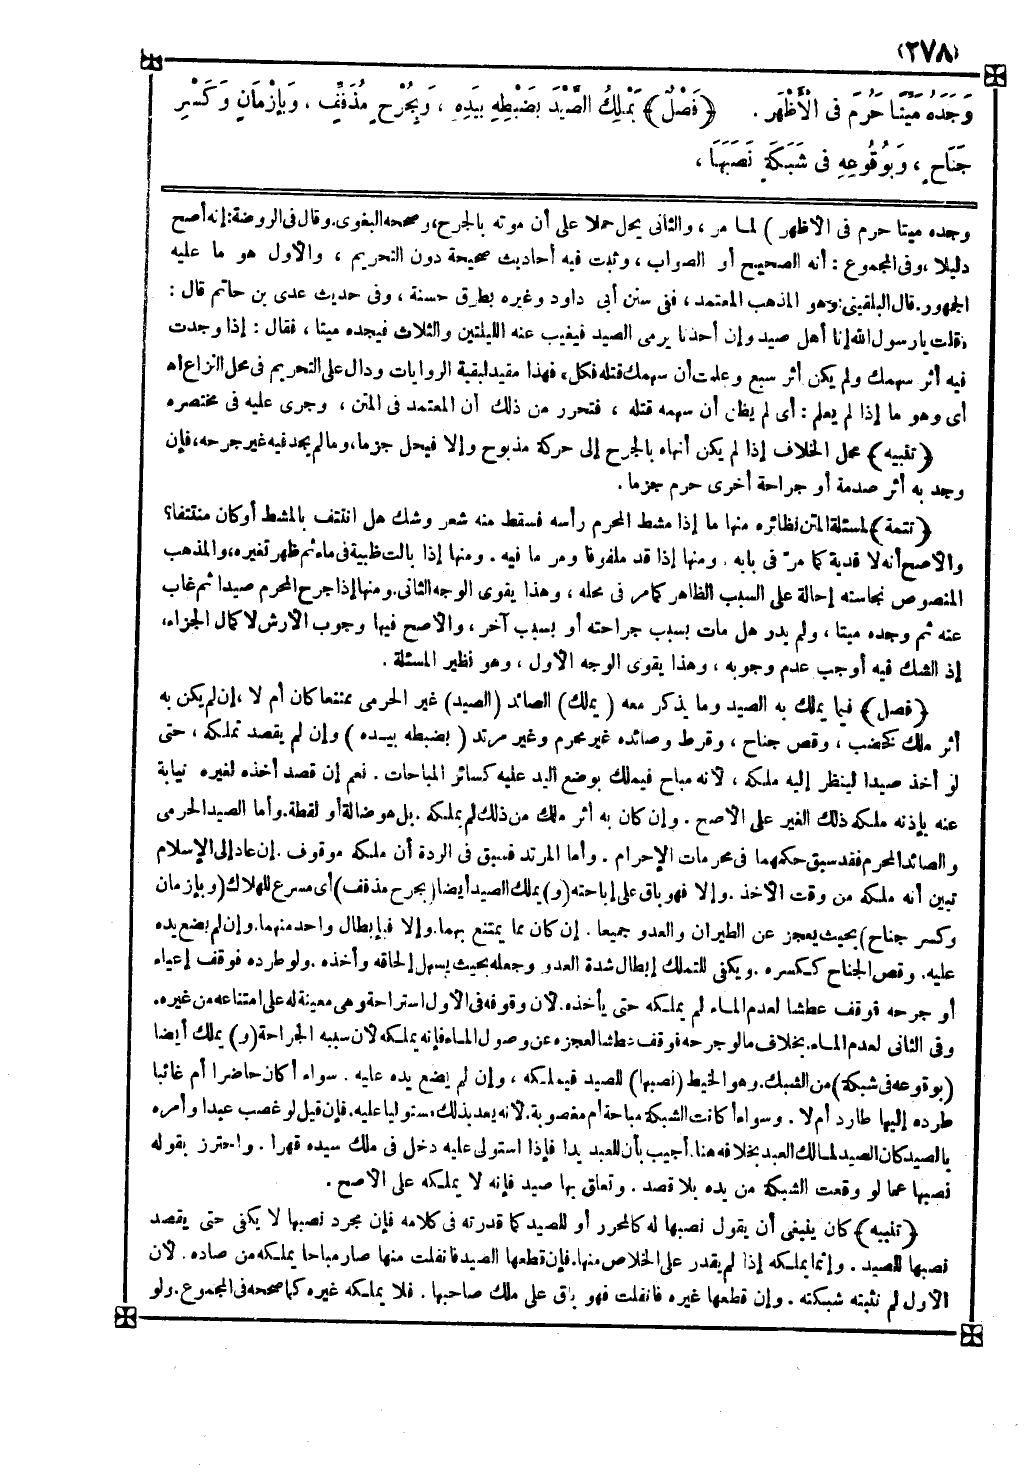 (٢٧٨)
وَجَدَهُ مَيِّتًا حَرُمَ فى الْأَظْهَرِ . ﴿فَصْلٌ﴾ يَمْلِكُ الصَّيْدَ بِضَبْطِهِ بِيَدِهِ ، وَبِجُرْحٍ مُذَفِّفٍ ، وَبِإِزْمَانٍ وَكَسْرِ
جَنَاحٍ ، وَبِوُقُوعِهِ فى شَبَكَةٍ نَصَبَهَا ،
وجده ميتا حرم فى الأظهر ) لما مر ، والثانى يحل حملا على أن موته بالجرح، وصححه البغوى.وقال فى الروضة: إنه أصح
دليلا ،وفى المجموع : أنه الصحيح أو الصواب ، وثبت فيه أحاديث صحيحة دون التحريم ، والأول هو ما عليه
الجمهور.قال البلقينى: وهو المذهب المعتمد ، ففى سنن أبى داود وغيره بطرق حسنة ، وفى حديث عدى بن حاتم قال :
«قلت يارسول الله إنا أهل صيد وإن أحدنا يرمى الصيد فيغيب عنه الليلتين والثلاث فيجده ميتا ، فقال : إذا وجدت
فيه أثر سهمك ولم يكن أثر سبع وعلمت أن سهمك قتله فكل» فهذا مقيد لبقية الروايات ودال على التحريم فى محل النزاع اه
أى وهو ما إذا لم يعلم : أى لم يظن أن سهمه قتله ، فتحرر من ذلك أن المعتمد فى المتن ، وجرى عليه فى مختصره
﴿ تنبيه ﴾ محل الخلاف إذا لم يكن أنهاه بالجرح إلى حركة مذبوح وإلا فيحل جزما، ومالم يجد فيه غير جرحه، فإن
وجد به أثر صدمة أو جراحة أخرى حرم جزما .
﴿ تتمة ﴾ لمسئلة المتن نظائر، منها ما إذا مشط المحرم رأسه فسقط منه شعر وشك هل انتتف بالمشط أو كان منتتفا؟
والأصح أنه لا فدية كما مرّ فى بابه . ومنها إذا قد ملفوفا ومر ما فيه . ومنها إذا بالت ظبية فى ماء ثم ظهر تغيره، والمذهب
المنصوص نجاسته إحالة على السبب الظاهر كما مر فى محله ، وهذا يقوى الوجه الثانى. ومنها إذا جرح المحرم صيدا ثم غاب
عنه ثم وجده ميتا ، ولم يدر هل مات بسبب جراحته أو بسبب آخر ، والأصح فيها وجوب الأرش لا كمال الجزاء،
إذ الشك فيه أوجب عدم وجوبه ، وهذا يقوى الوجه الأول ، وهو نظير المسئلة .
﴿ فصل ﴾ فيما يملك به الصيد وما يذكر معه ( يملك) الصائد (الصيد) غير الحرمى ممتنعا كان أم لا ،إن لم يكن به
أثر ملك كخضب ، وقص جناح ، وقرط وصائده غير محرم وغير مرتد ( بضبطه بيده ) وإن لم يقصد تملكه ، حتى
لو أخذ صيدا لينظر إليه ملكه ، لأنه مباح فيملك بوضع اليد عليه كسائر المباحات . نعم إن قصد أخذه لغيره نيابة
عنه بإذنه ملكه ذلك الغير على الأصح . وإن كان به أثر ملك من ذلك لم يملكه .بل هو ضالة أو لقطة.وأما الصيد الحرمى
والصائد المحرم فقد سبق حكمهما فى محرمات الإحرام . وأما المرتد فسبق فى الردة أن ملكه موقوف .إن عاد إلى الإسلام
تبين أنه ملكه من وقت الأخذ .وإلا فهو باق على إباحته (و) يملك الصيد أيضا (بجرح مذفف) أى مسرع للهلاك (وبإزمان
وكسر جناح) بحيث يعجز عن الطيران والعدو جميعا . إن كان مما يمتنع بهما.وإلا فبإبطال واحد منهما.وإن لم يضع يده
عليه. وقص الجناح ككسره .ويكفى للتملك إبطال شدة العدو وجعله بحيث يسهل إلحاقه وأخذه .ولو طرده فوقف إعياء
أو جرحه فوقف عطشا لعدم الماء لم يملكه حتى يأخذه.لأن وقوفه فى الأول استراحة وهى معينة له على امتناعه من غيره.
وفى الثانى لعدم الماء.بخلاف مالو جرحه فوقف عطشا لعجزه عن وصول الماء فإنه يملكه لأن سببه الجراحة (و) يملك أيضا
(بوقوعه فى شبكة) من الشبك.وهو الخيط (نصبها) للصيد فيملكه ، وإن لم يضع يده عليه . سواء أكان حاضرا أم غائبا
طرده إليها طارد أم لا . وسواء أكانت الشبكة مباحة أم مغصوبة.لأنه يعد بذلك مستوليا عليه.فإن قيل لو غصب عبدا وأمره
بالصيد كان الصيد لمالك العبد بخلافه هنا.أجيب بأن للعبد يدا فإذا استولى عليه دخل فى ملك سيده قهرا . واحترز بقوله
نصبها عما لو وقعت الشبكة من يده بلا قصد . وتعلق بها صيد فإنه لا يملكه على الأصح .
﴿ تنبيه ﴾ كان ينبغى أن يقول نصبها له كالمحرر أو للصيد كما قدرته فى كلامه فإن مجرد نصبها لا يكفى حتى يقصد
نصبها للصيد . وإنما يملكه إذا لم يقدر على الخلاص منها.فإن قطعها الصيد فانفلت منها صار مباحا يملكه من صاده . لأن
الأول لم تثبته شبكته . وإن قطعها غيره فانفلت فهو باق على ملك صاحبها . فلا يملكه غيره كما صححه فى المجموع.ولو